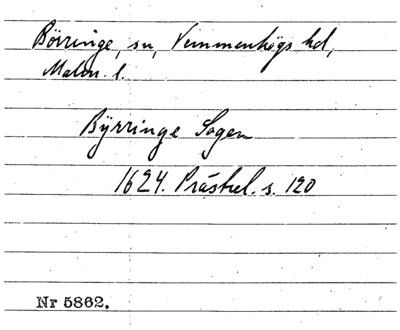 Börringe, sn, Vemmenhögs hd,
Malm. l.
Byrringe Sogen
1624. Präsrel. s. 120
Nr 5862.